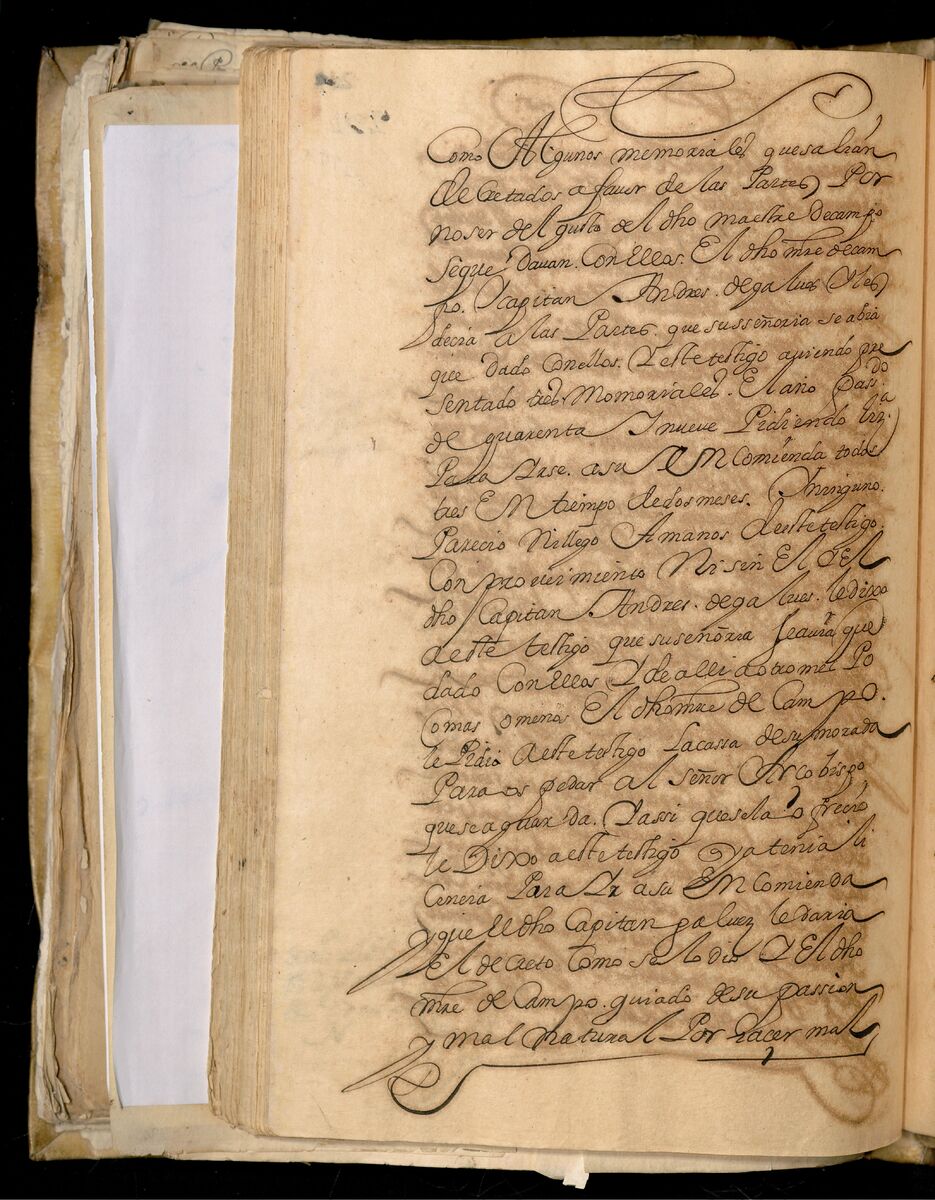 Como Algunos memoriales que salian
decretados a favor de las Partes Por
no ser del gusto del dho maestre de campo
se que davan. Con Ellos. El dho mre de cam
po. Y capitan Andres. de galves Y les
decia a las Partes. que su señoria se abia
que dado con ellos. Y este testigo aviendo pre
sentado tres Momoriales. El año Passdo
de quarenta Y nueve Pidiendo liza
Para Yrse. a su EnComienda todos
tres En tiempo de dos meses. Y ninguno.
Parecio Ni llego A manos de este testigo.
Con proveimiento Ni sin El Y El
dho Capitan. Andres. de galves. le dixo
a este testigo que su señoria se avia que
dado Con Ellos Y de alli a otro mes Po
co mas o menos El dho mre de Campo.
le Pidio a este testigo La cassa de su morada
Para os pedar al señor Arcobispo
que se aguarda. Y assi que se la ofrecio
le Dixo a este testigo Ya tenia li
Cencia Para Yr a su EnComienda
y que El dho Capitan galvez le daria
El decreto Como se lo dio Y El dho
mre de Campo. guiado de su passion
y mal natural Por hacer mal